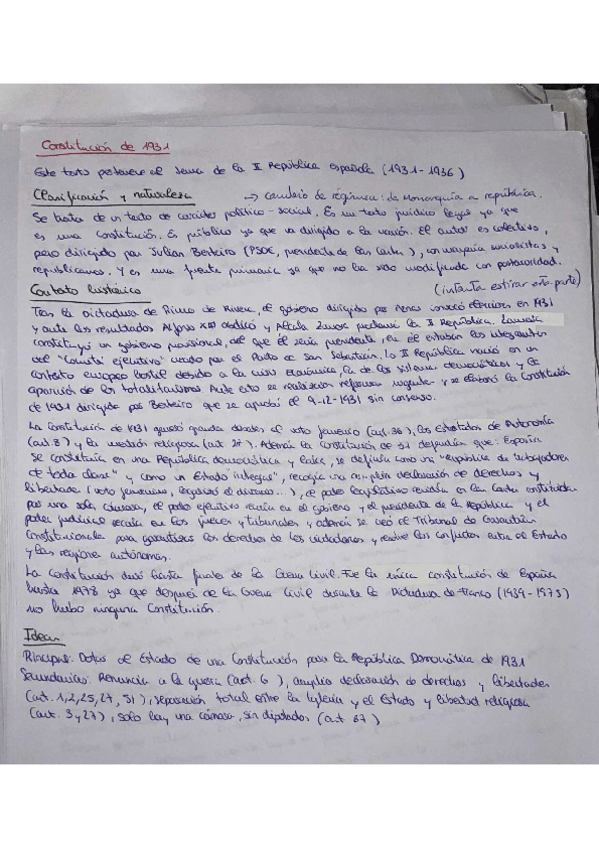 Constitución de 1931
Este texto pertenece al tema de la II República española (1931-1936)
Clasificación y naturaleza → cambio de régimen: de Monarquía a república.
Se trata de un texto de carácter político-social. Es un texto jurídico legal ya que
es una constitución. Es público ya que va dirigido a la nación. El autor es colectivo,
pero dirigido por Julian Besteiro (PSOE, presidente de las Cortes), con mayoría socialistas y
republicanos. Y es una fuente primaria ya que no ha sido modificada con posterioridad.
Contexto histórico (intenta estirar esta parte)
Tras la Dictadura de Primo de Rivera, el gobierno dirigido por convocó elecciones en 1931
y ante los resultados Alfonso XIII abdicó y Alcala Zamora proclamó la II República. Zamora
constituyó un gobierno provisional, del que él sería presidente, en él estaban los integrantes
del "Comité ejecutivo" creado por el Pacto de San Sebastián. La II República nació en un
contexto europeo hostil debido a la crisis económica, la de los sistemas democráticos y la
aparición de los totalitarismos. Ante esto se realizaron reformas y se elaboró la Constitución
de 1931 dirigida por Besteiro que se aprobó el 9-12-1931 sin consenso.
La Constitución de 1931 generó grandes debates: el voto femenino (art. 36), los Estatutos de Autonomía
(art. 8) y la cuestión religiosa (art. 26). Además la Constitución de 31 defendía que: España
se constituía en una República democrática y laica, se definía como una "república de trabajadores
de toda clase" y como un Estado "integral", recogía una amplia declaración de derechos y
libertades (voto femenino, el divorcio...), el poder legislativo residía en las Cortes constituidas
por una sola cámara, el poder ejecutivo recaía en el gobierno y el presidente de la república y el
poder judicial recaía en los jueces y tribunales y además se creó el Tribunal de Garantías
Constitucionales para garantizar los derechos de los ciudadanos y resolver los conflictos entre el Estado
y las regiones autónomas.
La Constitución duró hasta finales de la Guerra Civil. Fue la única constitución de España
hasta 1978 ya que después de la Guerra Civil durante la Dictadura de Franco (1939-1975)
no hubo ninguna Constitución.
Ideas
Principal: Dotar al Estado de una Constitución para la República Democrática de 1931
Secundarias: Renuncia a la guerra (art. 6), amplia declaración de derechos y libertades
(art. 1, 2, 25, 27, 31), separación total entre la Iglesia y el Estado y libertad religiosa
(art. 3 y 27), solo hay una cámara, sin diputados (art 87)